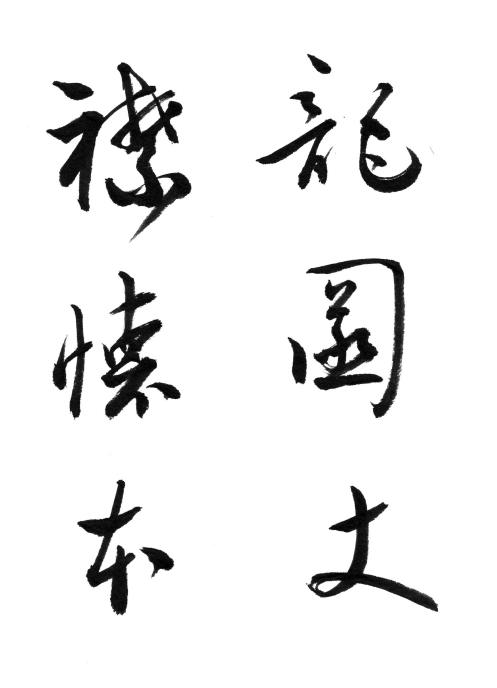 龍圖丈
襟懷本